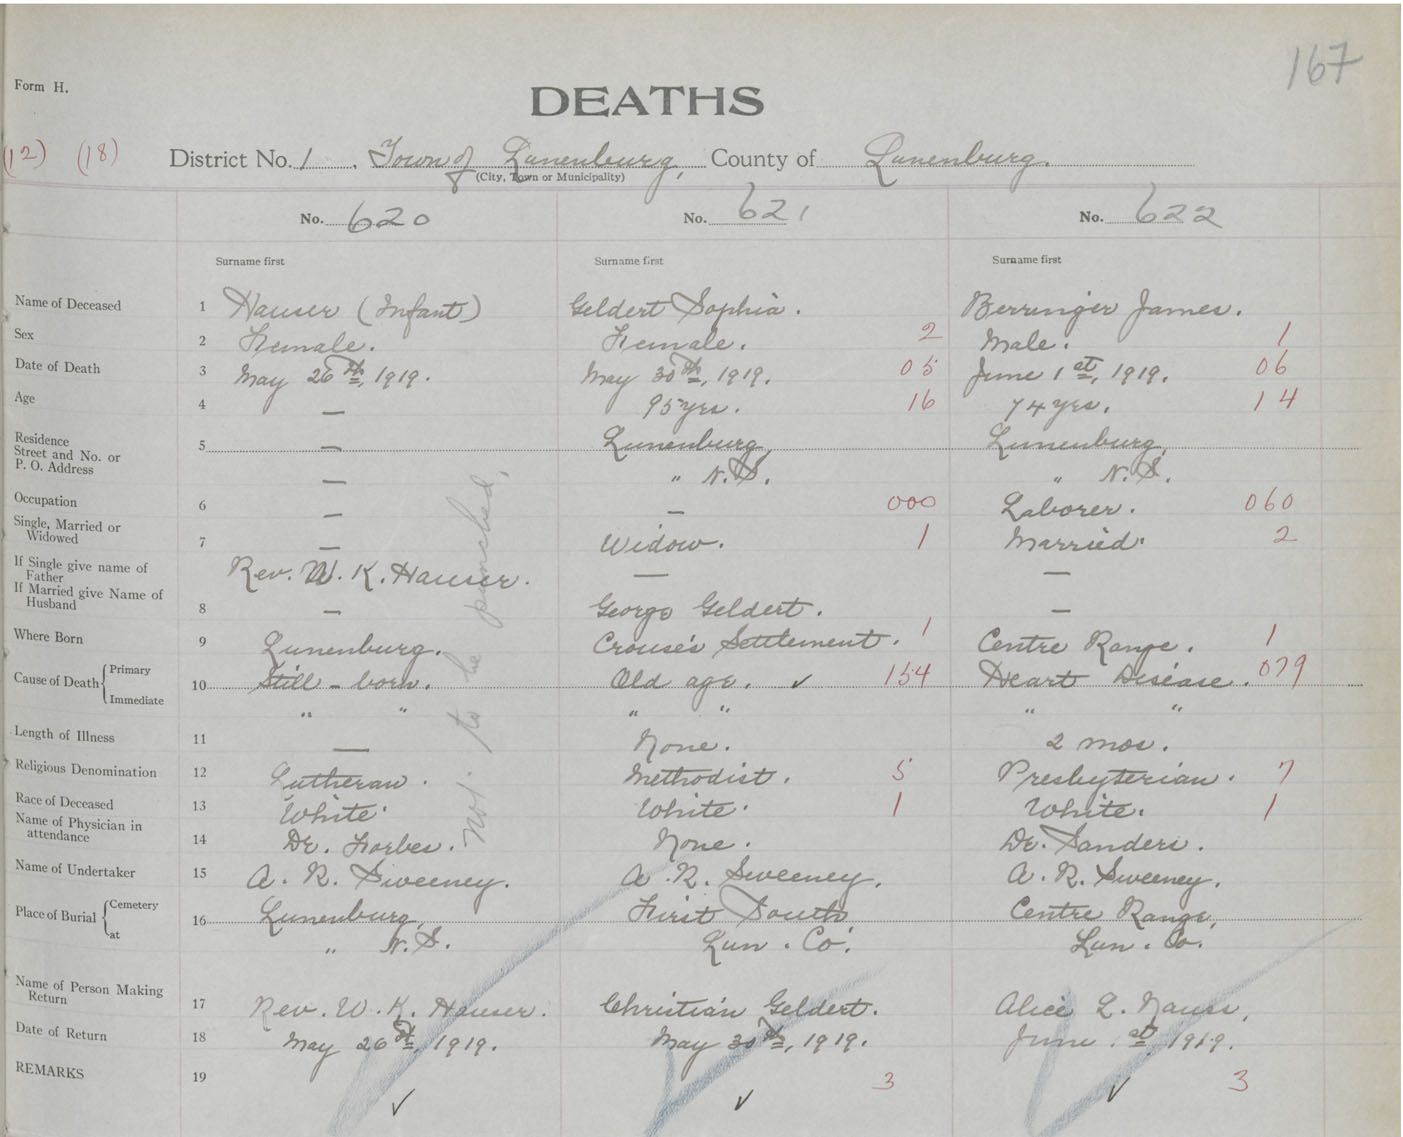 167
Form H.
DEATHS
(12) (18) District No. 1, Town of Lunenburg, County of Lunenburg.
(City, Town or Municipality)
No. 620 No. 621 No. 622
Surname first Surname first Surname first
Name of Deceased 1 Hauser (Infant) Geldert Sophia. Berringer James.
Sex 2 Female. Female. 2 Male. 1
Date of Death 3 May 26th, 1919. May 30th, 1919. 05 June 1st, 1919. 06
Age 4 — 95 yrs. 16 74 yrs. 14
Residence
Street and No. or 5 — Lunenburg, Lunenburg,
P. O. Address — " N.S. " N.S.
Occupation 6 — — 000 Laborer. 060
Single, Married or
Widowed 7 — Widow. 1 Married. 2
If Single give name of
Father Rev. W. K. Hauser. — —
If Married give Name of
Husband 8 — George Geldert. —
Where Born 9 Lunenburg. Crouse's Settlement. 1 Centre Range. 1
Cause of Death Primary 10 Still-born. Old age. ✓ 154 Heart Disease. 079
Immediate " " " " " "
Length of Illness 11 — None. 2 mos.
Religious Denomination 12 Lutheran. Methodist. 5 Presbyterian. 7
Race of Deceased 13 White. White. 1 White. 1
Name of Physician in
attendance 14 Dr. Forbes. None. Dr. Sanders.
Not to be punched.
Name of Undertaker 15 A. R. Sweeney. A. R. Sweeney. A. R. Sweeney.
Place of Burial Cemetery 16 Lunenburg, First South Centre Range,
at " N.S. Lun. Co. Lun. Co.
Name of Person Making
Return 17 Rev. W. K. Hauser. Christian Geldert. Alice L. Nauss,
Date of Return 18 May 26th, 1919. May 30th, 1919. June 1st, 1919.
REMARKS 19 3 3
✓ ✓ ✓